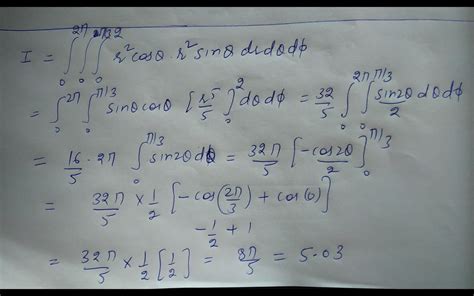 I = ∫₀^{2π} ∫₀^{π/3} ∫₀^{2} r² cosθ · r² sinθ dr dθ dϕ
= ∫₀^{2π} ∫₀^{π/3} sinθ cosθ [r⁵/5]₀² dθ dϕ = 32/5 ∫₀^{2π} ∫₀^{π/3} sin2θ/2 dθ dϕ
= 16/5 · 2π ∫₀^{π/3} sin2θ dθ = 32π/5 [-cos2θ/2]₀^{π/3}
= 32π/5 × 1/2 [-cos(2π/3) + cos(0)]
-1/2 + 1
= 32π/5 × 1/2 [1/2] = 8π/5 = 5.03